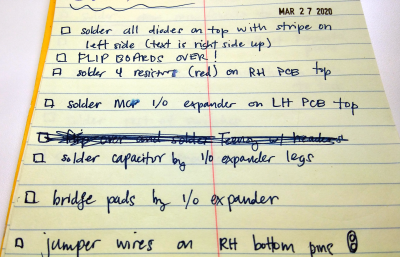 MAR 27 2020
□ solder all diodes on top with stripe on
left side (text is right side up)
□ FLIP BOARDS OVER!
□ solder 4 resistors (red) on RH PCB top
□ solder MCP I/O expander on LH PCB top
□ over and solder Teensy w/ headers
□ solder capacitor by I/O expander legs
□ bridge pads by I/O expander
□ jumper wires on RH bottom pins